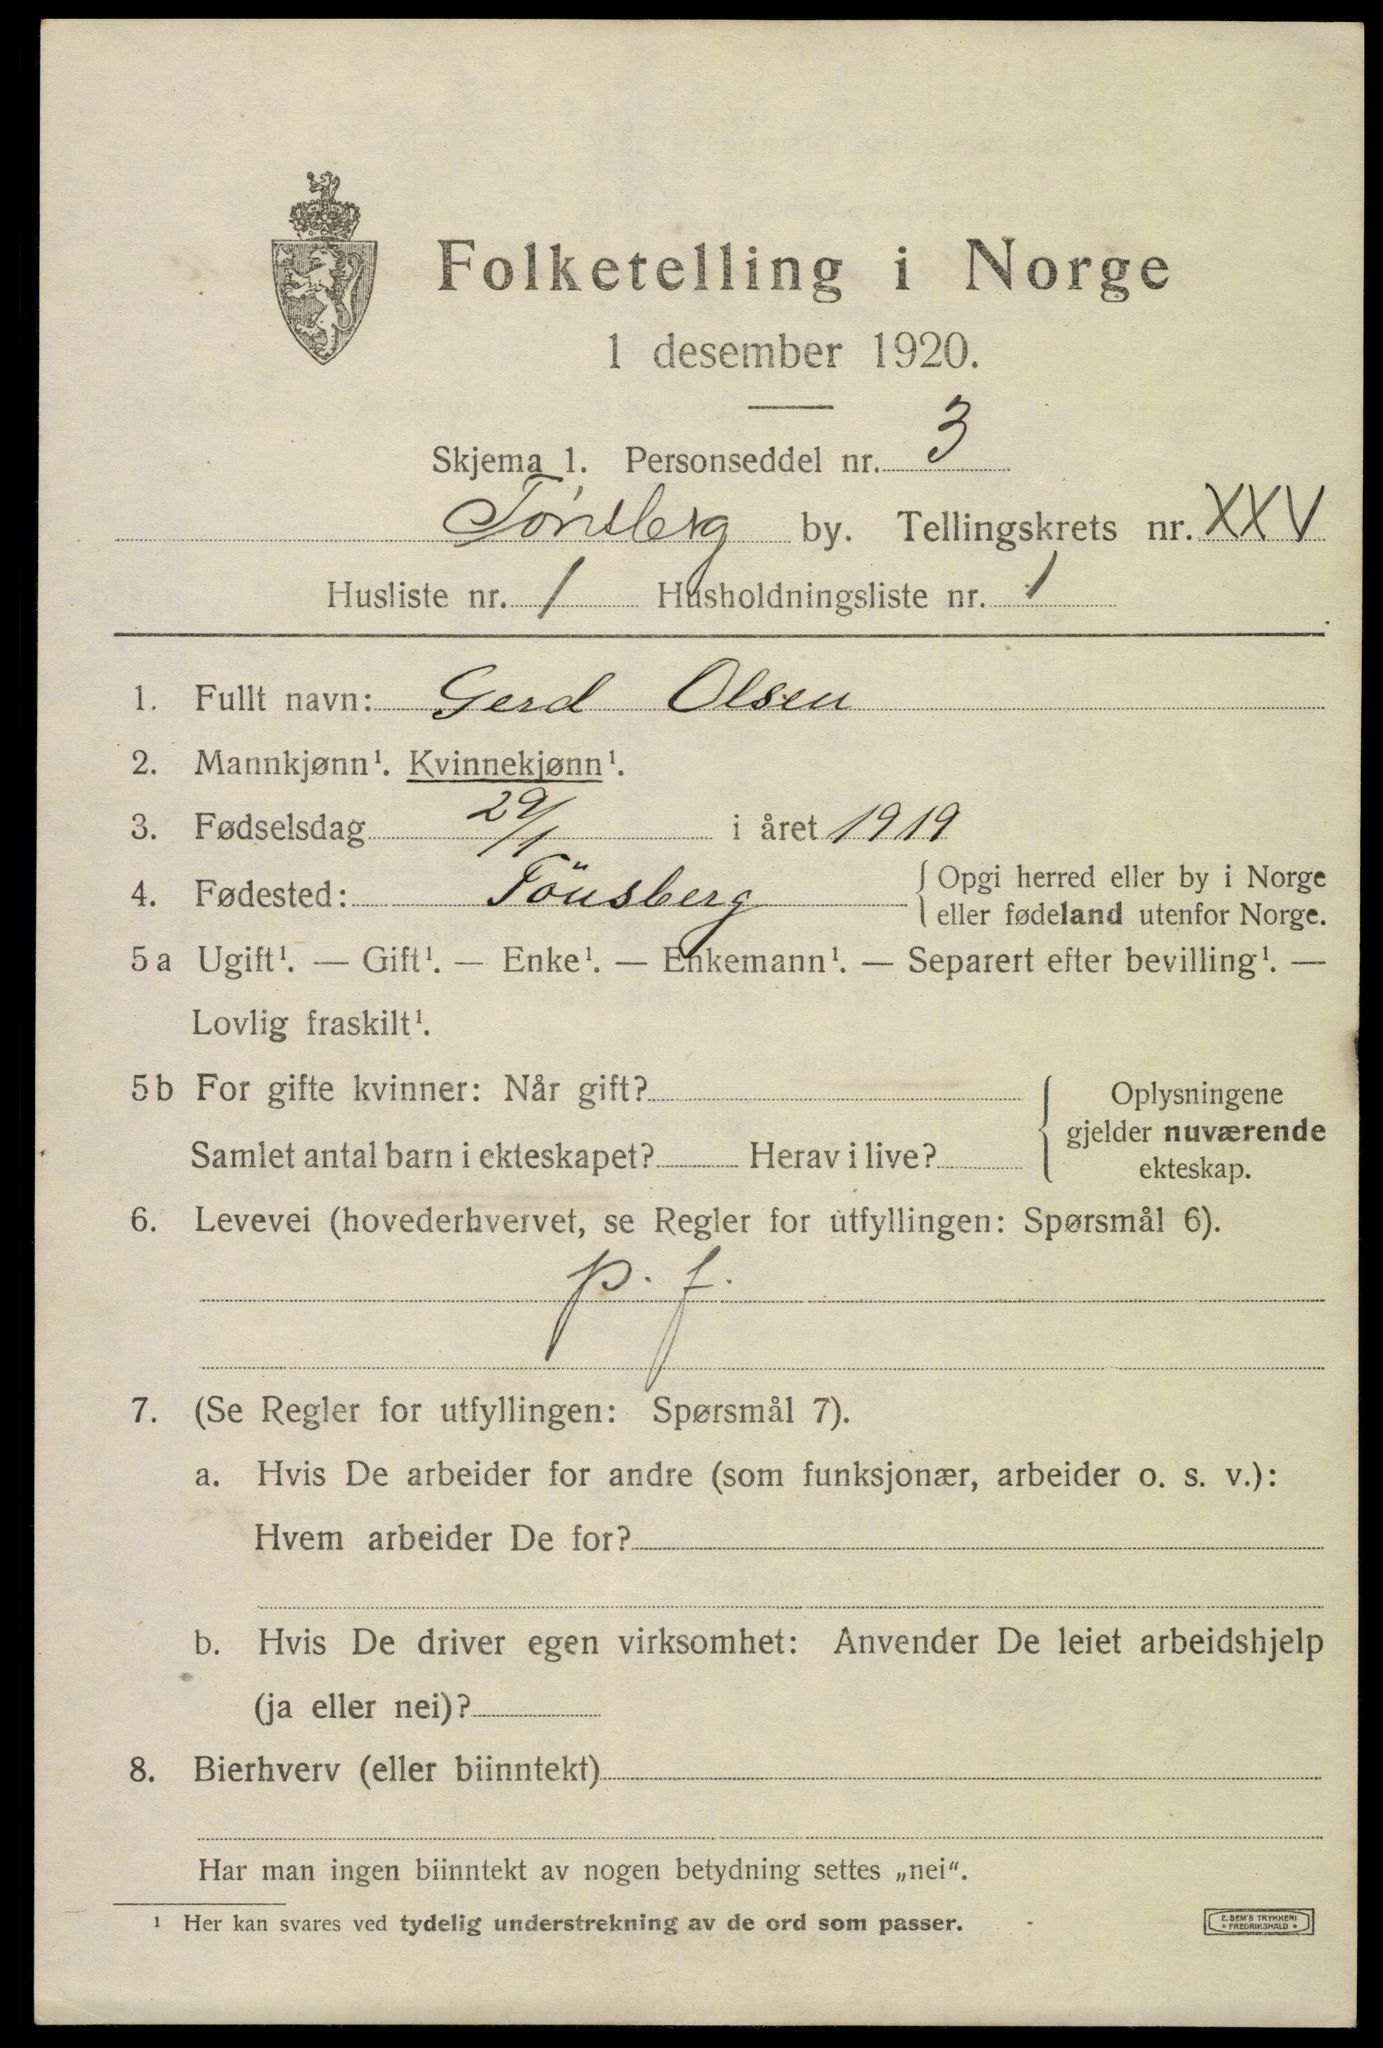 Folketelling i Norge
1 desember 1920.
Skjema 1. Personseddel nr. 3
Tønsberg by. Tellingskrets nr. XXV
Husliste nr. 1 Husholdningsliste nr. 1
1. Fullt navn: Gerd Olsen
2. Mannkjønn¹. Kvinnekjønn¹.
3. Fødselsdag 29/1 i året 1919
4. Fødested: Tönsberg { Opgi herred eller by i Norge
eller fødeland utenfor Norge.
5a Ugift¹. — Gift¹. — Enke¹. — Enkemann¹. — Separert efter bevilling¹. —
Lovlig fraskilt¹.
5b For gifte kvinner: Når gift?
Samlet antal barn i ekteskapet? Herav i live?
{ Oplysningene
gjelder nuværende
ekteskap.
6. Levevei (hovederhvervet, se Regler for utfyllingen: Spørsmål 6).
p. f.
7. (Se Regler for utfyllingen: Spørsmål 7).
a. Hvis De arbeider for andre (som funksjonær, arbeider o. s. v.):
Hvem arbeider De for?
b. Hvis De driver egen virksomhet: Anvender De leiet arbeidshjelp
(ja eller nei)?
8. Bierhverv (eller biinntekt)
Har man ingen biinntekt av nogen betydning settes „nei“.
¹ Her kan svares ved tydelig understrekning av de ord som passer.
E. SEM'S TRYKKERI
* FREDRIKSHALD *